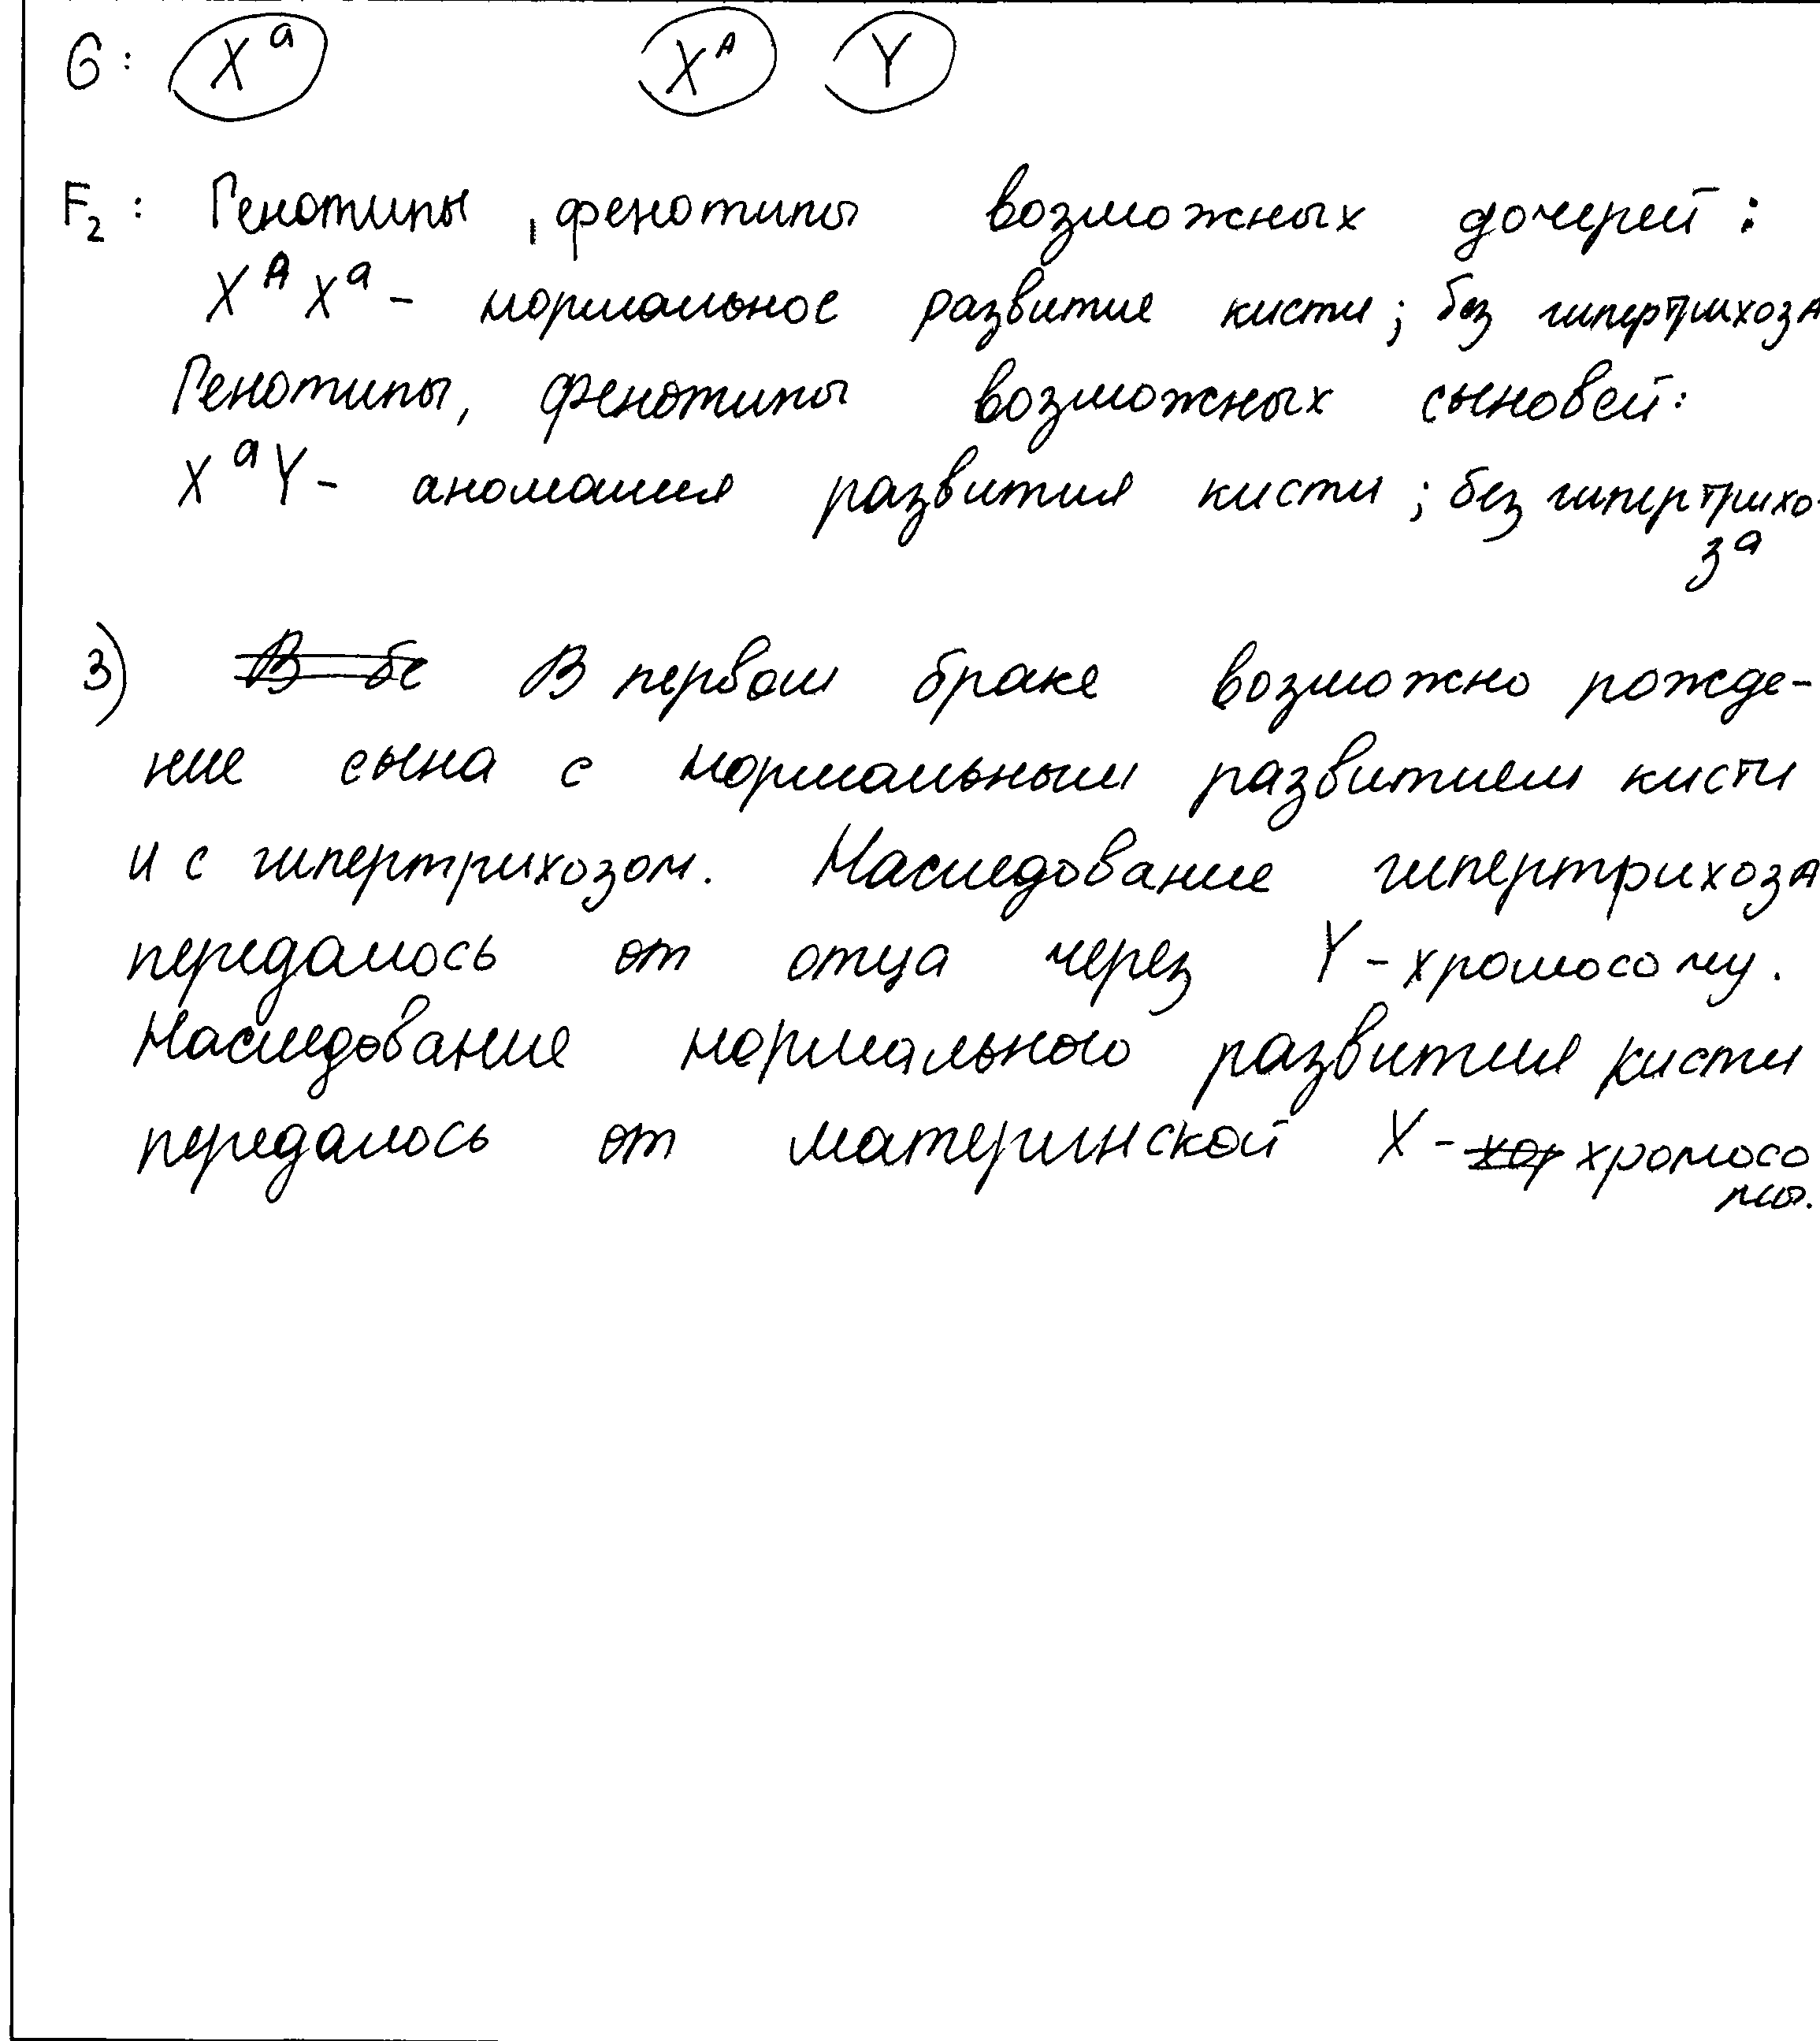 G: X^a X^A Y
F₂: Генотипы, фенотипы возможных дочерей:
X^A X^a - нормальное развитие кисти; без гипертрихоза
Генотипы, фенотипы возможных сыновей:
X^a Y - аномалия развития кисти; без гипертрихо-
за
3) В бе В первом браке возможно рожде-
ние сына с нормальным развитием кисти
и с гипертрихозом. Наследование гипертрихоза
передалось от отца через Y-хромосому.
Наследование нормального развития кисти
передалось от материнской X-хор хромосо
мы.